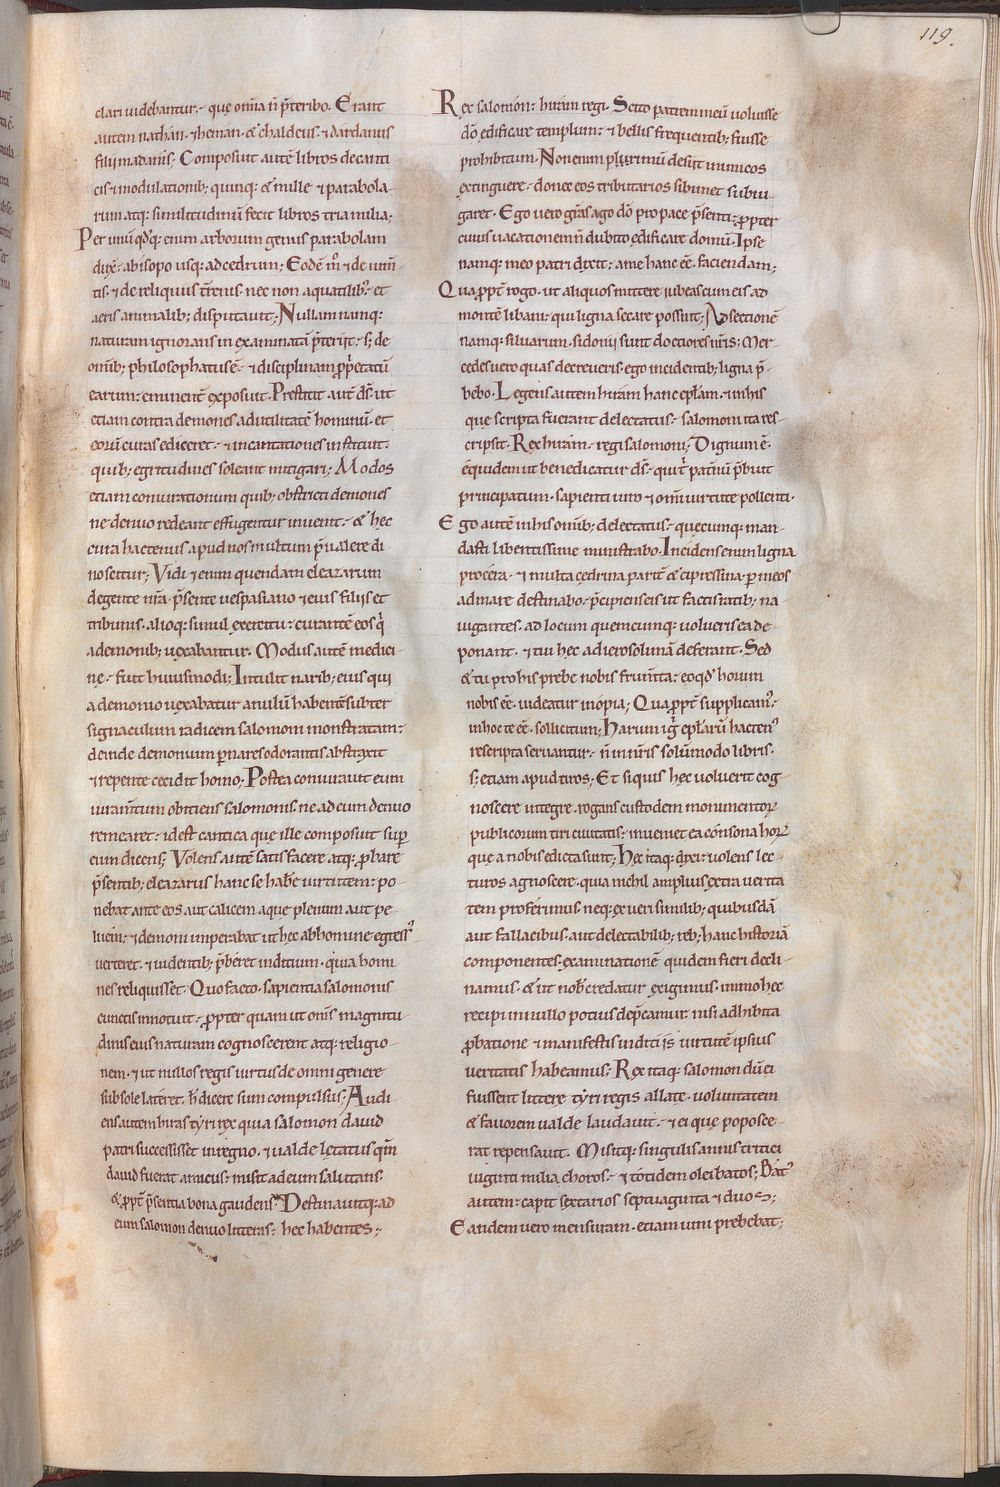 119.
clari uidebantur. quę om̄ia n̄ p̄teribo. Erant
autem nathán. ⁊ henan. & chaldeus. ⁊ dardanus
filii madanis; Composuit autē libros de canti
cis ⁊ modulationib; quinq: & mille ⁊ parabola-
rum atq: similitudinū fecit libros tria milia;
Per unū qd'q: enim arborum genus parabolam
dux̄. ab isopo usq: ad cedrum; Eodē m̊ ⁊ de ium̄
tis. ⁊ de reliquis t̄renis. nec non aquatilib;. et
aeris animalib; disputauit; Nullam namq:
naturam ignorans in exammatā p̄teriit. s; de
om̄ib; philosophatus ē. ⁊ disciplinam ꝓprietatū
earum: eminent̄ exposuit. Prestitit aut̄ d̄s. ut
etiam contra demones ad utilitatē hominū. et
eorū curas ediceret. ⁊ incantationes instituit.
quib; egritudines soleant mitigari; Modos
etiam coniurationum quib; obstricti demones
ne denuo redeant effugentur inuenit. & hęc
cura hactenus apud nos multum p̄ualere di
noscitur; Vidi etenim quendam eleazarum
degente nr̄a. p̄sente uespasiano ⁊ eius filiis et
tribunis. alioq: simul exercitu: curantē eos qⁱ
a demonib; uexabantur. Modus autē medici-
nę. fuit huiusmodi; Intulit narib; eius qui
a demonio uexabatur anulū habentē subter
signaculum radicem salomoni monstratam:
deinde demonium ꝑ nares odorantis abstraxit
⁊ repente cecidit homo; Postea coniurauit eum
iuram̄tum obitiens salomonis. ne ad eum denuo
remearet: idest cantica quę ille composuit suꝑ
eum dicens; Volens autē satis facere atq: ꝓbare
p̄sentib; eleazarus hanc se habe uirtutem: po-
nebat ante eos aut calicem aque plenum aut pe-
luem: ⁊ demoni imperabat ut hec ab homine egress'
uerteret. ⁊ uidentib; p̄beret inditium. quia homi
nes reliquisset. Quo facto. sapientia salomonis
cunctis innotuit. ꝓpter quam ut om̄s magnitu
dinis eius naturam cognoscerent atq: religio-
nem. ⁊ ut nullos regis uirtus de omni genere
sub sole lateret. h̄ dicere sum compulsus; Audi
ens autem hiras tyri rex quia salomon dauid
patri successisset in regno. ⁊ ualde letatus qm̄
dauid fuerat amicus: misit ad eum salutans.
& ꝓpt̄ p̄sentia bona gaudens. Destinauitq: ad
eum salomon denuo litteras: hec habentes;
Rex salomón: hirám regi. Scito patrem meū uoluisse
dō ędificare templum: ⁊ bellis frequentib; fuisse
prohibitum. Non enim plurimū desiit inimicos
extinguere. donec eos tributarios sibimet subiu
garet. Ego uero gr̄as ago dō pro pace p̄senti: ꝓpter
cuius uacationem n̄ dubito ędificare domū. Ipse
namq: meo patri dixit: a me hanc eē. faciendam;
Qua ꝓpt̄ rogo. ut aliquos mittere iubeas cum eis ad
montē libani: qui ligna secare possint; Ad sectionē
namq: siluarum. sidonii sunt doctiores nr̄is; Mer-
cedes uero quas decreueris. ego incidentib; ligna p̄-
bebo. Legens autem hirám hanc epl̄am. ⁊ in his
que scripta fuerant delectatus. salomoni ita res-
cripsit. Rex hirám. regi salomoni; Dignum ē.
ęquidem ut benedicatur d̄s. qui t̄ patnū p̄buit
principatum. sapienti uiro ⁊ omi uirtute pollenti.
Ego autē in his om̄ib; delectatus. quecumq: man-
dasti libentissime ministrabo. Incidens enim ligna
procéra. ⁊ multa cędrina part̄ & cipressina. ꝑ meos
ad mare destinabo. p̄cipiens eis ut factis ratib; na-
uigantes. ad locum quemcumq: uolueris ea de-
ponant. ⁊ tui hec ad ierosolimā deferant. Sed
& tu pro his prebe nobis frum̄ta: eo qd' horum
nobis eē. uideatur inopia; Qua ꝓpt̄ supplicam'.
in hoc te eē. sollicitum; Harum igⁱ epl̄arū hacten'
rescripta seruantur. n̄ in nr̄is solūmodo libris.
s; etiam apud tiros; Et siquis hęc uoluerit cog-
noscere integre. rogans custodem monumentoꝝ
publicorum tiri ciuitatis: inueniet ea cōnsona hoꝝ
quę a nobis edicta sunt; Hęc itaq: dixi: uolens lec-
turos agnoscere. quia nichil amplius extra uerita
tem proferimus. neq: ex ueri similib; quibusdā
aut fallacibus aut delectabilib; reb; hanc historiā
componentes. examinationē quidem fieri decli-
namus. & ut nob̄ credatur exigimus. immo hęc
recipi in nullo potius dep̄camur. nisi adhibita
ꝓbatione & manifestis inditiis uirtutē ipsius
ueritatis habeamus; Rex itaq: salomon dū ei
fuissent litterę tyri regis allate. uoluntatem
& fauorem ualde laudauit. ⁊ ei quę poposce-
rat repensauit. Misitq: singulis annis tritici
uiginti milia choros. ⁊ totidem olei batos; Bat'
autem: capit sextarios septuaginta & duos;
Eandem uero mensuram. etiam uini prebebat;